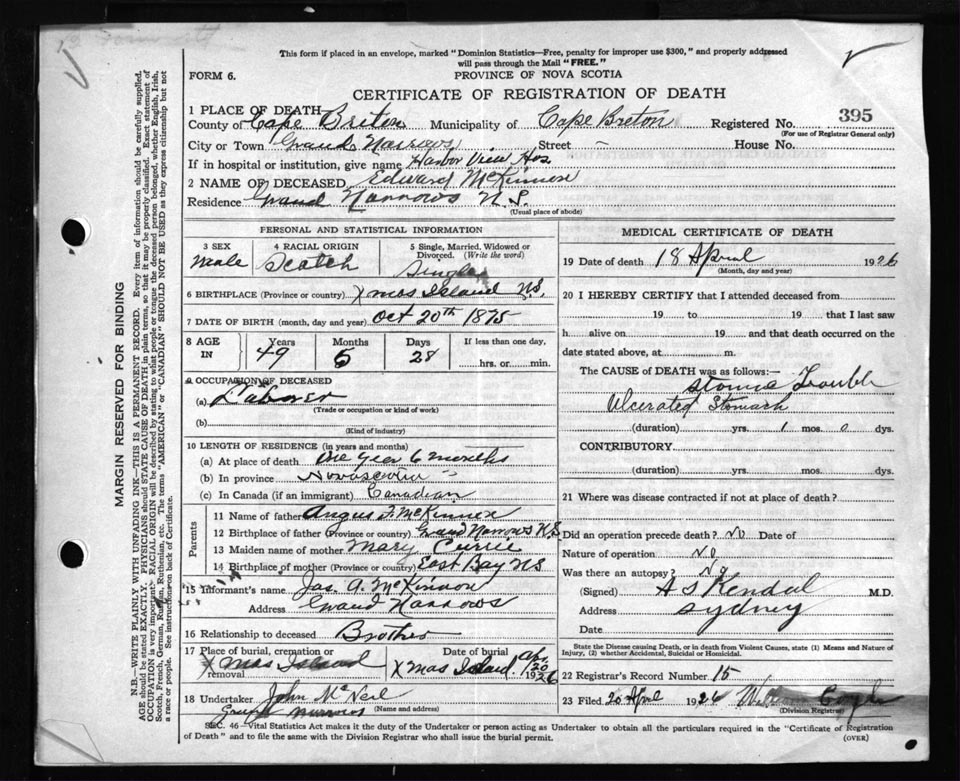 This form if placed in an envelope, marked "Dominion Statistics—Free, penalty for improper use $300," and properly addressed
will pass through the Mail "FREE."
FORM 6. PROVINCE OF NOVA SCOTIA
CERTIFICATE OF REGISTRATION OF DEATH
1 PLACE OF DEATH
County of Cape Breton Municipality of Cape Breton Registered No. 395
(For use of Registrar General only)
City or Town Grand Narrows Street – House No.
If in hospital or institution, give name Harbor View Hos
2 NAME OF DECEASED Edward McKinnon
Residence Grand Narrows N.S.
(Usual place of abode)
PERSONAL AND STATISTICAL INFORMATION
3 SEX 4 RACIAL ORIGIN 5 Single, Married, Widowed or Divorced. (Write the word)
Male Scotch Single
6 BIRTHPLACE (Province or country) Xmas Island N.S.
7 DATE OF BIRTH (month, day and year) Oct 20th 1875
8 AGE IN Years Months Days If less than one day,
49 5 28 hrs. or min.
9 OCCUPATION OF DECEASED
(a) Laborer
(Trade or occupation or kind of work)
(b)
(Kind of industry)
10 LENGTH OF RESIDENCE (in years and months)
(a) At place of death One year 6 months
(b) In province Novascotia
(c) In Canada (if an immigrant) Canadian
Parents
11 Name of father Angus F. McKinnon
12 Birthplace of father (Province or country) Grand Narrows N.S
13 Maiden name of mother Mary Currie
14 Birthplace of mother (Province or country) East Bay NS
15 Informant's name Jas. A. McKinnon
Address Grand Narrows
16 Relationship to deceased Brother
17 Place of burial, cremation or removal Date of burial
Xmas Island Xmas Island. Apr 20 1926
18 Undertaker John McNeil
Grand Narrows (Name and address)
MEDICAL CERTIFICATE OF DEATH
19 Date of death 18 April 1926
(Month, day and year)
20 I HEREBY CERTIFY that I attended deceased from
19 to 19 that I last saw
h alive on 19 and that death occurred on the
date stated above, at m.
The CAUSE of DEATH was as follows:—
Trouble
Ulcerated Stomach
(duration) yrs. 1 mos. 0 dys.
CONTRIBUTORY.
(duration) yrs. mos. dys.
21 Where was disease contracted if not at place of death?
Did an operation precede death? No Date of
Nature of operation No
Was there an autopsy? No
(Signed) A S Kendal M.D.
Address Sydney
Date
State the Disease causing Death, or in death from Violent Causes, state (1) Means and Nature of
Injury, (2) whether Accidental, Suicidal or Homicidal.
22 Registrar's Record Number 15
23 Filed 20 April 1926
(Division Registrar)
SEC. 46—Vital Statistics Act makes it the duty of the Undertaker or person acting as Undertaker to obtain all the particulars required in the "Certificate of Registration
of Death" and to file the same with the Division Registrar who shall issue the burial permit. (OVER)
MARGIN RESERVED FOR BINDING
N.B.—WRITE PLAINLY WITH UNFADING INK—THIS IS A PERMANENT RECORD. Every item of information should be carefully supplied.
AGE should be stated EXACTLY. PHYSICIANS should STATE CAUSE OF DEATH in plain terms, so that it may be properly classified. Exact statement of
OCCUPATION is very important. RACIAL ORIGIN will be described by stating to what people or tongue the deceased person belonged, whether English, Irish,
Scotch, French, German, Russian, Ruthenian, etc. The terms "AMERICAN" or "CANADIAN" SHOULD NOT BE USED as they express citizenship but not
a race or people. See instructions on back of Certificate.